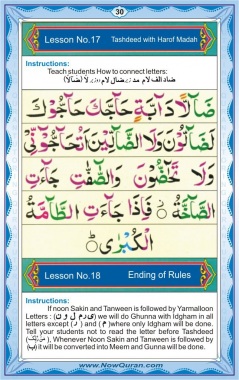 30
Lesson No.17 Tashdeed with Harof Madah
Instructions:
Teach students How to connect letters:
ضَآلًّا دَآبَّةٍ حَآجَّكَ حَآجُّوْكَ
لَضَآلُّوْنَ وَلَا الضَّآلِّيْنَ اَتُحَآجُّوْٓنِّيْ
وَلَا تَحٰٓضُّوْنَ وَالصّٰٓفّٰتِ جَآءَتِ
الصَّآخَّةُ فَاِذَا جَآءَتِ الطَّآمَّةُ
الْكُبْرٰى
Lesson No.18 Ending of Rules
Instructions:
If noon Sakin and Tanween is followed by Yarmalloon
Letters : (ی ر م ل و ن) we will do Ghunna with Idgham in all
letters except (ر) and (م)where only Idgham will be done.
Tell your students not to read the letter before Tashdeed
Whenever Noon Sakin and Tanween is followed by
(ب) it will be converted into Meem and Gunna will be done.
www.NowQuran.com